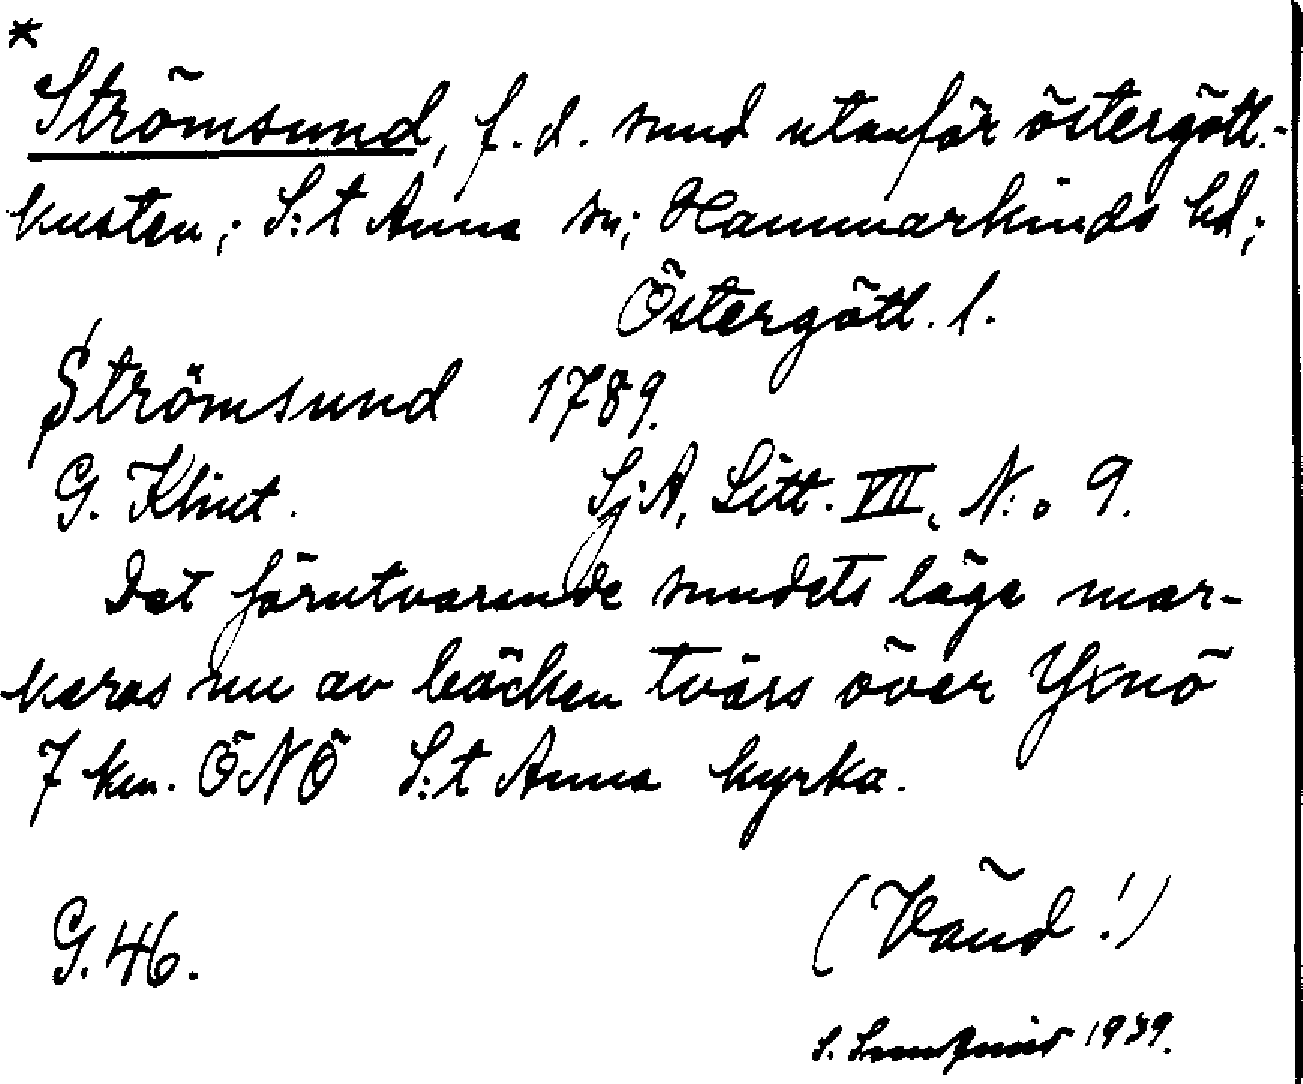 *
Strömsund, f.d. sund utanför östergötl.-
kusten; S:t Anna sn; Hammarkinds hd;
Östergötl. l.
Strömsund 1789.
G. Klint. SjA, Litt. VIII, N:o 9.
Det förutvarande sundets läge mar-
keras nu av bäcken tvärs över Yxnö
7 km. ÖNÖ S:t Anna kyrka.
(Vänd!)
G. 46.
S. 1939.